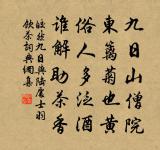 九日山僧院
東籬菊也黃
俗人多泛酒
誰解助茶香
皎然九日與陸處士羽
飲茶詞典網集